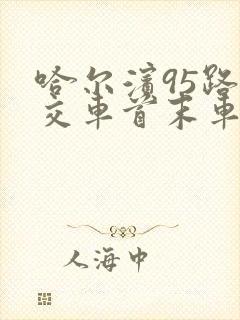 哈尔滨95路
交车首末车
人海中